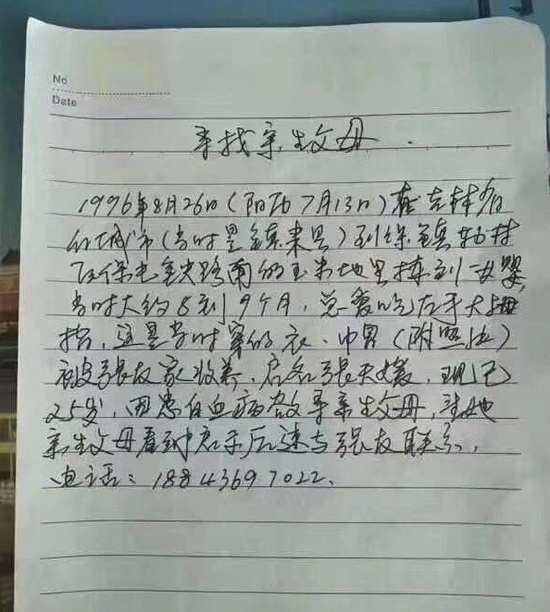 No
Date
寻找亲生父母.
1996年8月26日(阳历7月13日)在吉林省
白城市(当时是镇来县)到保镇
区保屯金铁路南的玉米地里捡到一女婴,
当时大约8到9个月,总爱吃右手大拇
指,这是当时穿的衣、巾男(附照片)
被张友家收养,启名张天媛,现已
25岁,因患白血病故寻亲生父母,若她
亲生父母看到启示后速与张友联系,
电话:18843697022.